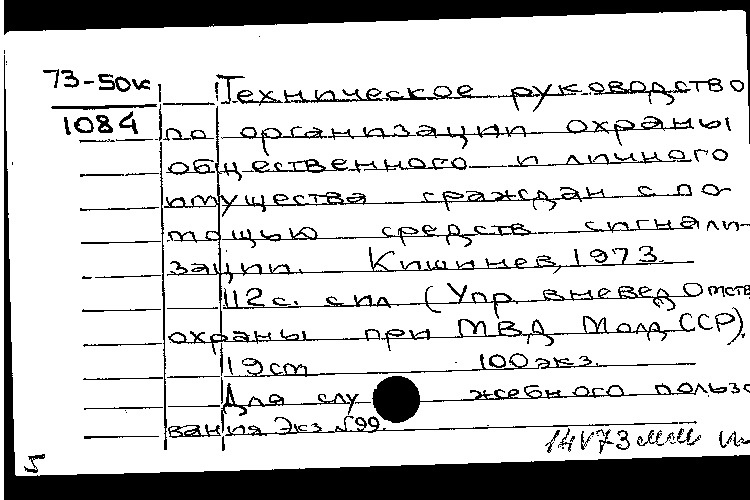 73-50к
1084
Техническое руководство
по организации охраны
общественного и личного
имущества граждан с по-
мощью средств сигнали-
зации. Кишинев, 1973.
112 с. с ил (Упр. вневед Отмств
охраны при МВД Молд ССР).
19 cm 100 экз.
Для слу жебного пользо
вания Экз №99.
14 V 73
5